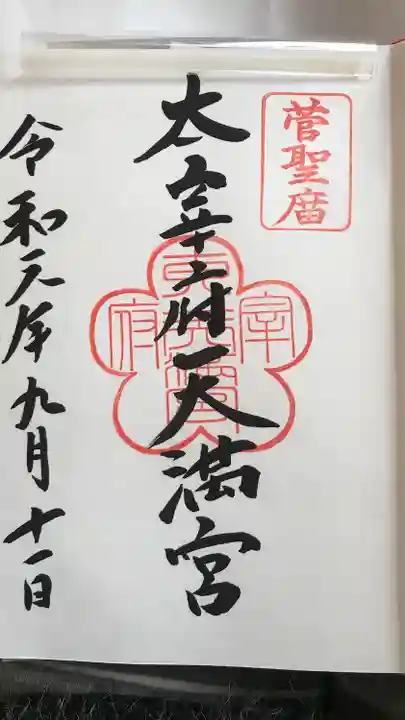 菅聖庿
太宰府天満宮
宰
府
令和元年九月十一日